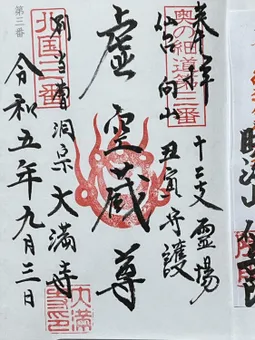 奉拝
奥の細道第三番
十二支霊場
仙台向山
丑寅守護
虚空蔵尊
北国三番
別当曹洞宗大満寺
令和五年九月三日
第三番